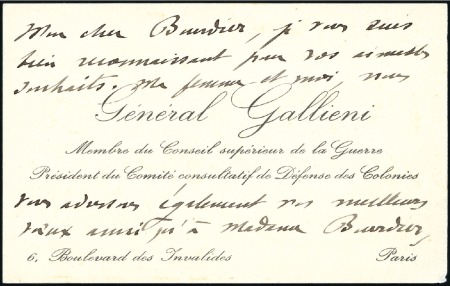 Mon cher Bourdier, je vous suis
bien reconnaissant pour vos aimables
souhaits. Ma femme et moi, nous
Général Gallieni
Membre du Conseil supérieur de la Guerre
Président du Comité consultatif de Défense des Colonies
vous adressons également nos meilleurs
vœux ainsi qu'à Madame Bourdier,
6, Boulevard des Invalides Paris